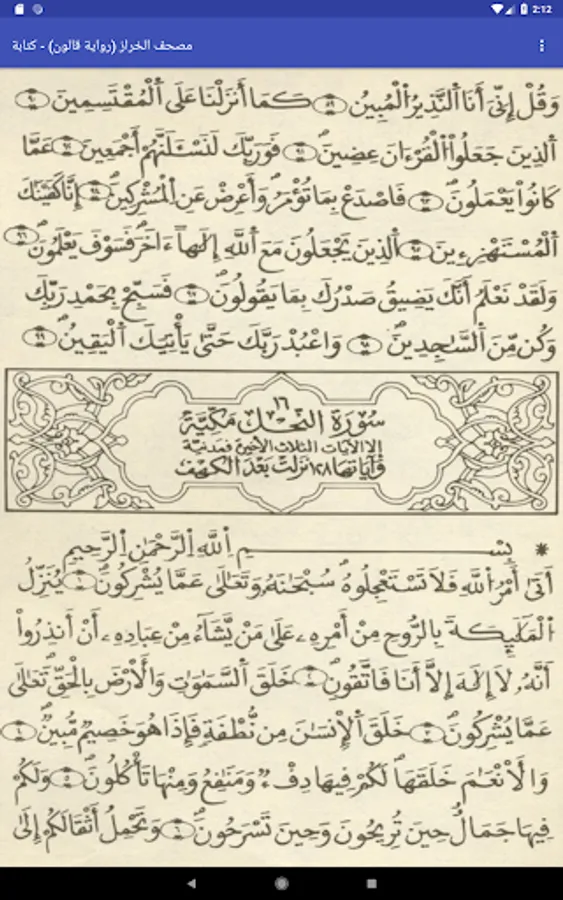 2:12
مصحف الخراز (رواية قالون) - كتابة
وَقُلْ إِنِّيَ أَنَا اَ۬لنَّذِيرُ اُ۬لْمُبِينُ ٨٩ كَمَا أَنزَلْنَا عَلَى اَ۬لْمُقْتَسِمِينَ ٩٠
اَ۬لذِينَ جَعَلُواْ اُ۬لْقُرْءَانَ عِضِينَ ٩١ فَوَرَبِّكَ لَنَسْـَٔلَنَّهُمْ أَجْمَعِينَ ٩٢ عَمَّا
كَانُواْ يَعْمَلُونَ ٩٣ فَاصْدَعْ بِمَا تُؤْمَرُ وَأَعْرِضْ عَنِ اِ۬لْمُشْرِكِينَ ٩٤ إِنَّا كَفَيْنَٰكَ
اَ۬لْمُسْتَهْزِءِينَ ٩٥ اَ۬لذِينَ يَجْعَلُونَ مَعَ اَ۬للَّهِ إِلَٰهاً ءَاخَرَ فَسَوْفَ يَعْلَمُونَ ٩٦
وَلَقَدْ نَعْلَمُ أَنَّكَ يَضِيقُ صَدْرُكَ بِمَا يَقُولُونَ ٩٧ فَسَبِّحْ بِحَمْدِ رَبِّكَ
وَكُن مِّنَ اَ۬لسَّٰجِدِينَ ٩٨ وَاعْبُدْ رَبَّكَ حَتَّىٰ يَأْتِيَكَ اَ۬لْيَقِينُ ٩٩
١٦
سُورَةُ النَّحْلِ مَكِّيَّة
إلا الآيات الثلاث الأخيرة فمدنية
وآياتها ١٢٨ نزلت بعد الكهف
* بِسْمِ اِ۬للَّهِ اِ۬لرَّحْمَٰنِ اِ۬لرَّحِيمِ
أَتَىٰ أَمْرُ اُ۬للَّهِ فَلَا تَسْتَعْجِلُوهُ سُبْحَٰنَهُۥ وَتَعَٰلَىٰ عَمَّا يُشْرِكُونَ ١ يُنَزِّلُ
اُ۬لْمَلَٰٓئِكَةَ بِالرُّوحِ مِنْ أَمْرِهِۦ عَلَىٰ مَنْ يَّشَآءُ مِنْ عِبَادِهِۦ أَنْ أَنذِرُواْ
أَنَّهُۥ لَا إِلَٰهَ إِلَّا أَنَا فَاتَّقُونِ ٢ خَلَقَ اَ۬لسَّمَٰوَٰتِ وَالْأَرْضَ بِالْحَقِّ تَعَٰلَىٰ
عَمَّا يُشْرِكُونَ ٣ خَلَقَ اَ۬لْإِنسَٰنَ مِن نُّطْفَةٍ فَإِذَا هُوَ خَصِيمٌ مُّبِينٌ ٤
وَالْأَنْعَٰمَ خَلَقَهَا لَكُمْ فِيهَا دِفْءٌ وَمَنَٰفِعُ وَمِنْهَا تَأْكُلُونَ ٥ وَلَكُمْ
فِيهَا جَمَالٌ حِينَ تُرِيحُونَ وَحِينَ تَسْرَحُونَ ٦ وَتَحْمِلُ أَثْقَالَكُمْ إِلَىٰ